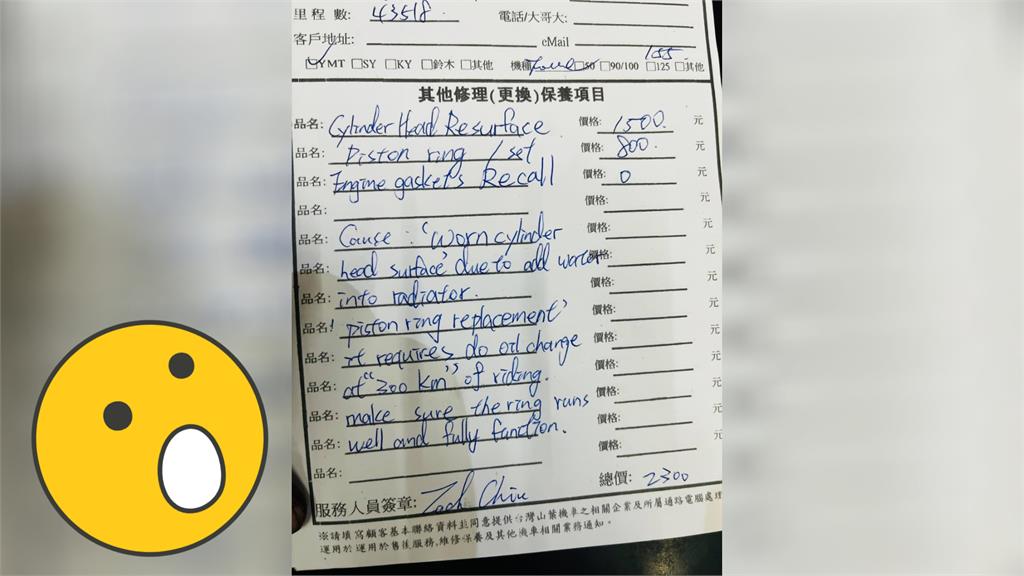 里程 數: 43518.
電話/大哥大:
客戶地址:
eMail
YMT □SY □KY □鈴木 □其他
機種 □50 □90/100 □125 □其他
155
其他修理(更換)保養項目
品名: Cylinder Head Resurface 價格: 1500. 元
品名: Piston ring / set 價格: 800. 元
品名: Engine gasket's Recall 價格: 0 元
品名: 價格: 元
品名: Cause : 'Worn cylinder 價格: 元
品名: head surface' due to add water 價格: 元
品名: into radiator. 價格: 元
品名: 'piston ring replacement' 價格: 元
品名: it requires do oil change 價格: 元
品名: at "300 km" of riding. 價格: 元
品名: make sure the ring runs 價格: 元
品名: well and fully function. 價格: 元
品名: 總價: 2300
服務人員簽章: Zach Chiu
※請填寫顧客基本聯絡資料並同意提供台灣山葉機車之相關企業及所屬通路電腦處理
運用於運用於售後服務,維修保養及其他機車相關業務通知。